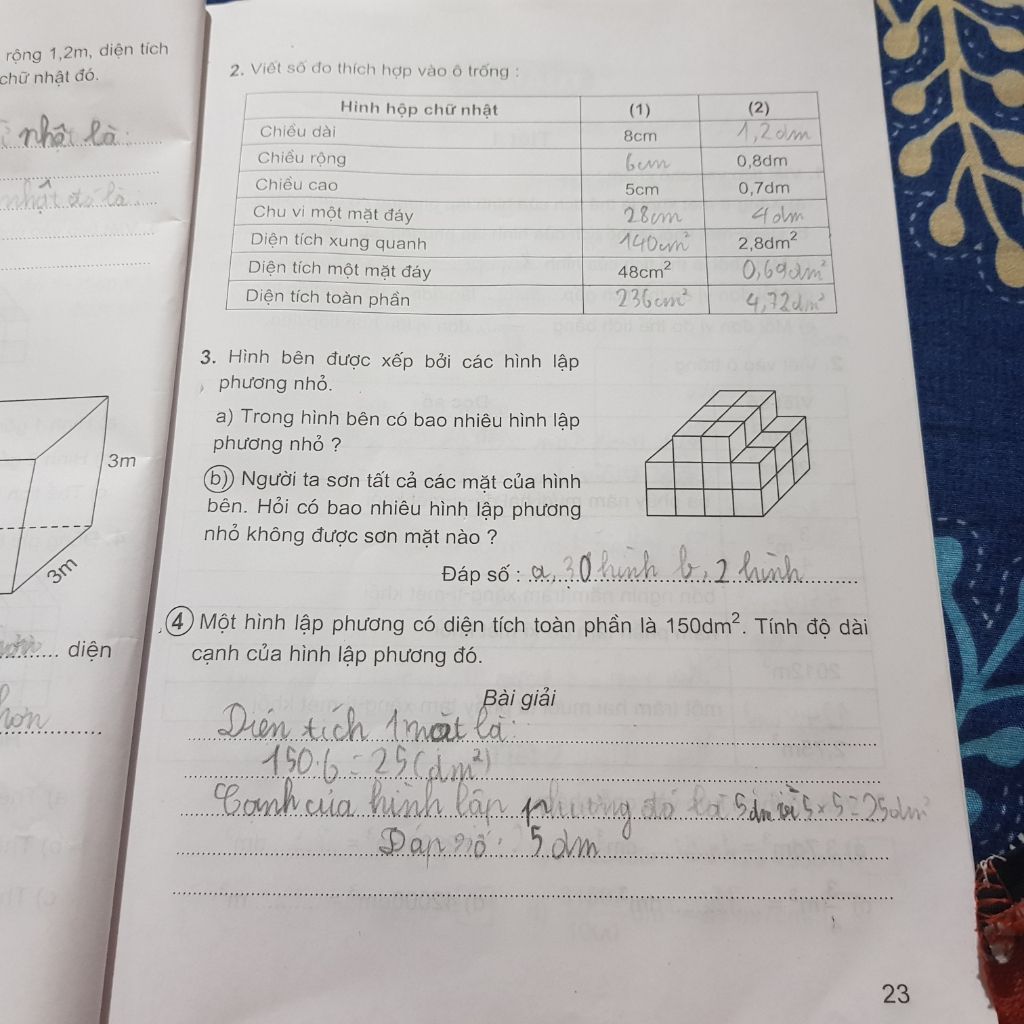 rộng 1,2m, diện tích
chữ nhật đó.
nhật là:
nhất đó là:
3m
3m
diện
hơn
2. Viết số đo thích hợp vào ô trống :
Hình hộp chữ nhật (1) (2)
Chiều dài 8cm 1,2dm
Chiều rộng 6cm 0,8dm
Chiều cao 5cm 0,7dm
Chu vi một mặt đáy 28cm 4dm
Diện tích xung quanh 140cm² 2,8dm²
Diện tích một mặt đáy 48cm² 0,69dm²
Diện tích toàn phần 236cm² 4,72dm²
3. Hình bên được xếp bởi các hình lập
phương nhỏ.
a) Trong hình bên có bao nhiêu hình lập
phương nhỏ ?
b) Người ta sơn tất cả các mặt của hình
bên. Hỏi có bao nhiêu hình lập phương
nhỏ không được sơn mặt nào ?
Đáp số : a, 30 hình b, 2 hình
4 Một hình lập phương có diện tích toàn phần là 150dm². Tính độ dài
cạnh của hình lập phương đó.
Bài giải
Diên tích 1 mặt là:
150:6 = 25 (dm²)
Canh của hình lập phương đó là 5dm vì 5 x 5 = 25dm²
Đáp số: 5 dm
23